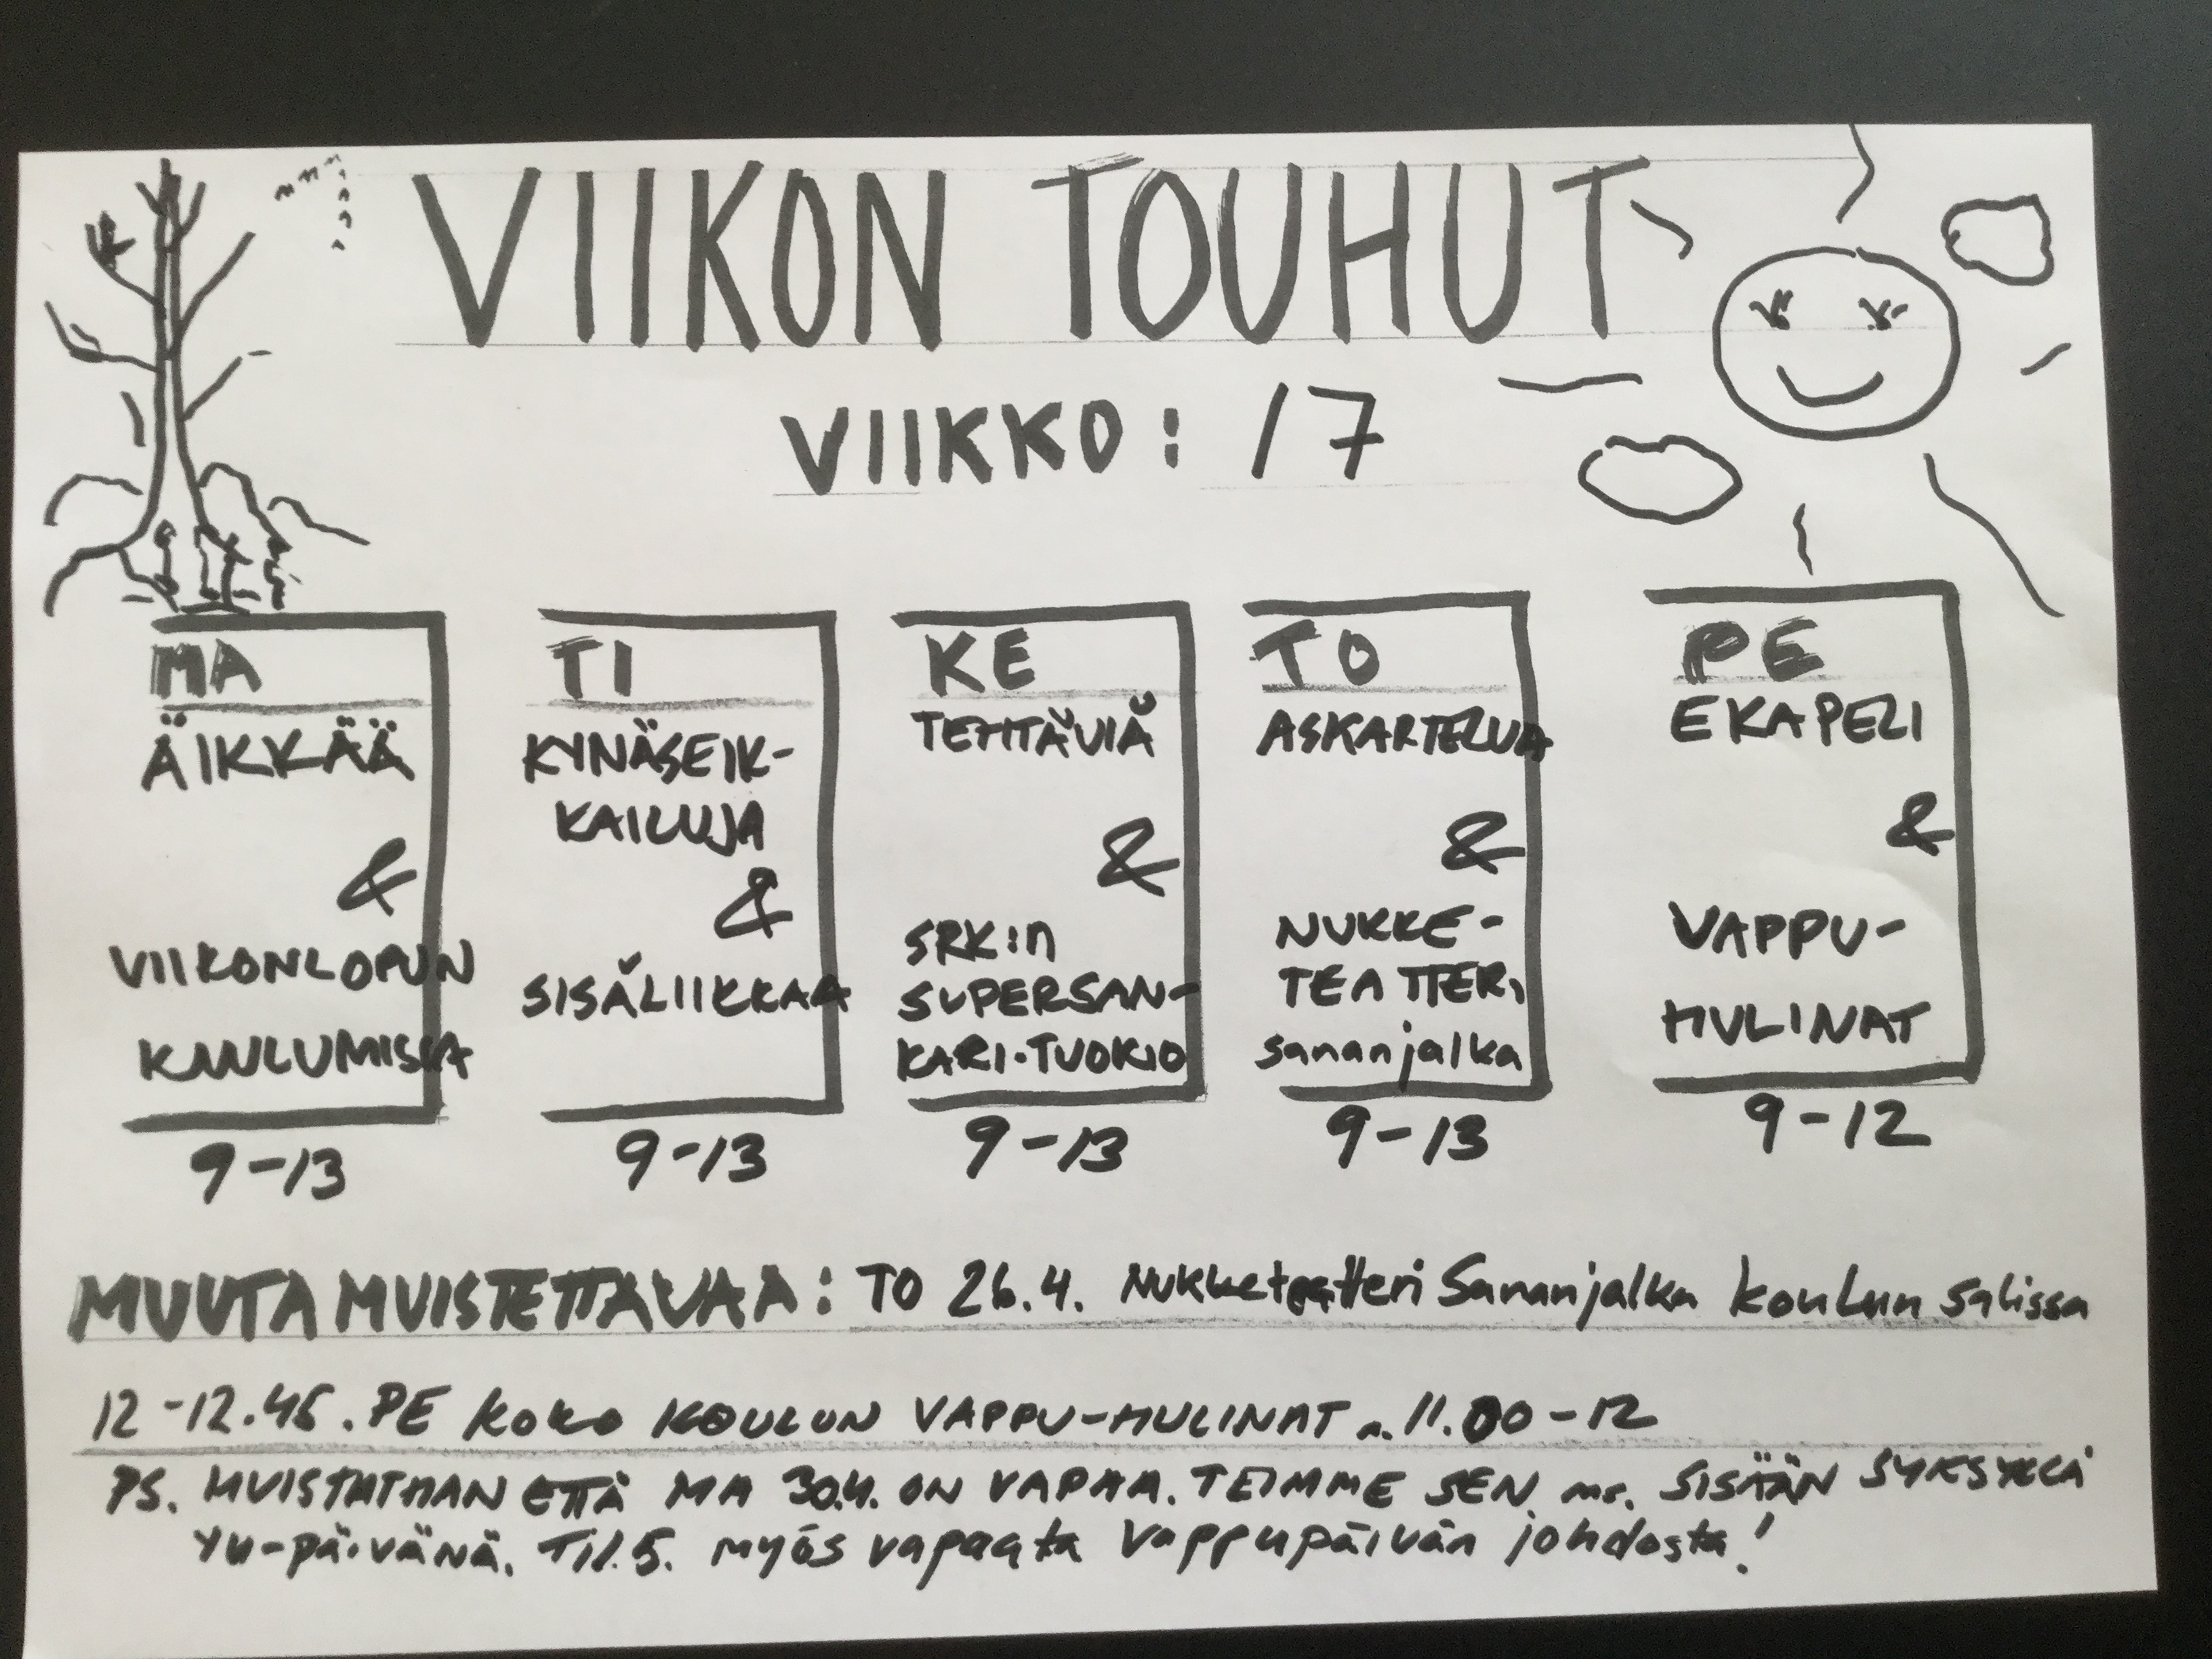 VIIKON TOUHUT
VIIKKO: 17
MA
ÄIKKÄÄ
&
VIIKONLOPUN
KUULUMISIA
9-13
TI
KYNÄSEIK-
KAILUJA
&
SISÄLIIKKAA
9-13
KE
TEHTÄVIÄ
&
SRK:n
SUPERSAN-
KARI-TUOKIO
9-13
TO
ASKARTELUA
&
NUKKE-
TEATTERI
sananjalka
9-13
PE
EKAPELI
&
VAPPU-
HULINAT
9-12
MUUTA MUISTETTAVAA: TO 26.4. Nukketeatteri Sananjalka koulun salissa
12-12.45. PE koko KOULUN VAPPU-HULINAT n. 11.00-12
PS. MUISTATHAN ETTÄ MA 30.4. ON VAPAA. TEIMME SEN SISÄÄN SYKSYLLÄ
YU-päivänä. Ti 1.5. myös vapaata Vappupäivän johdosta!